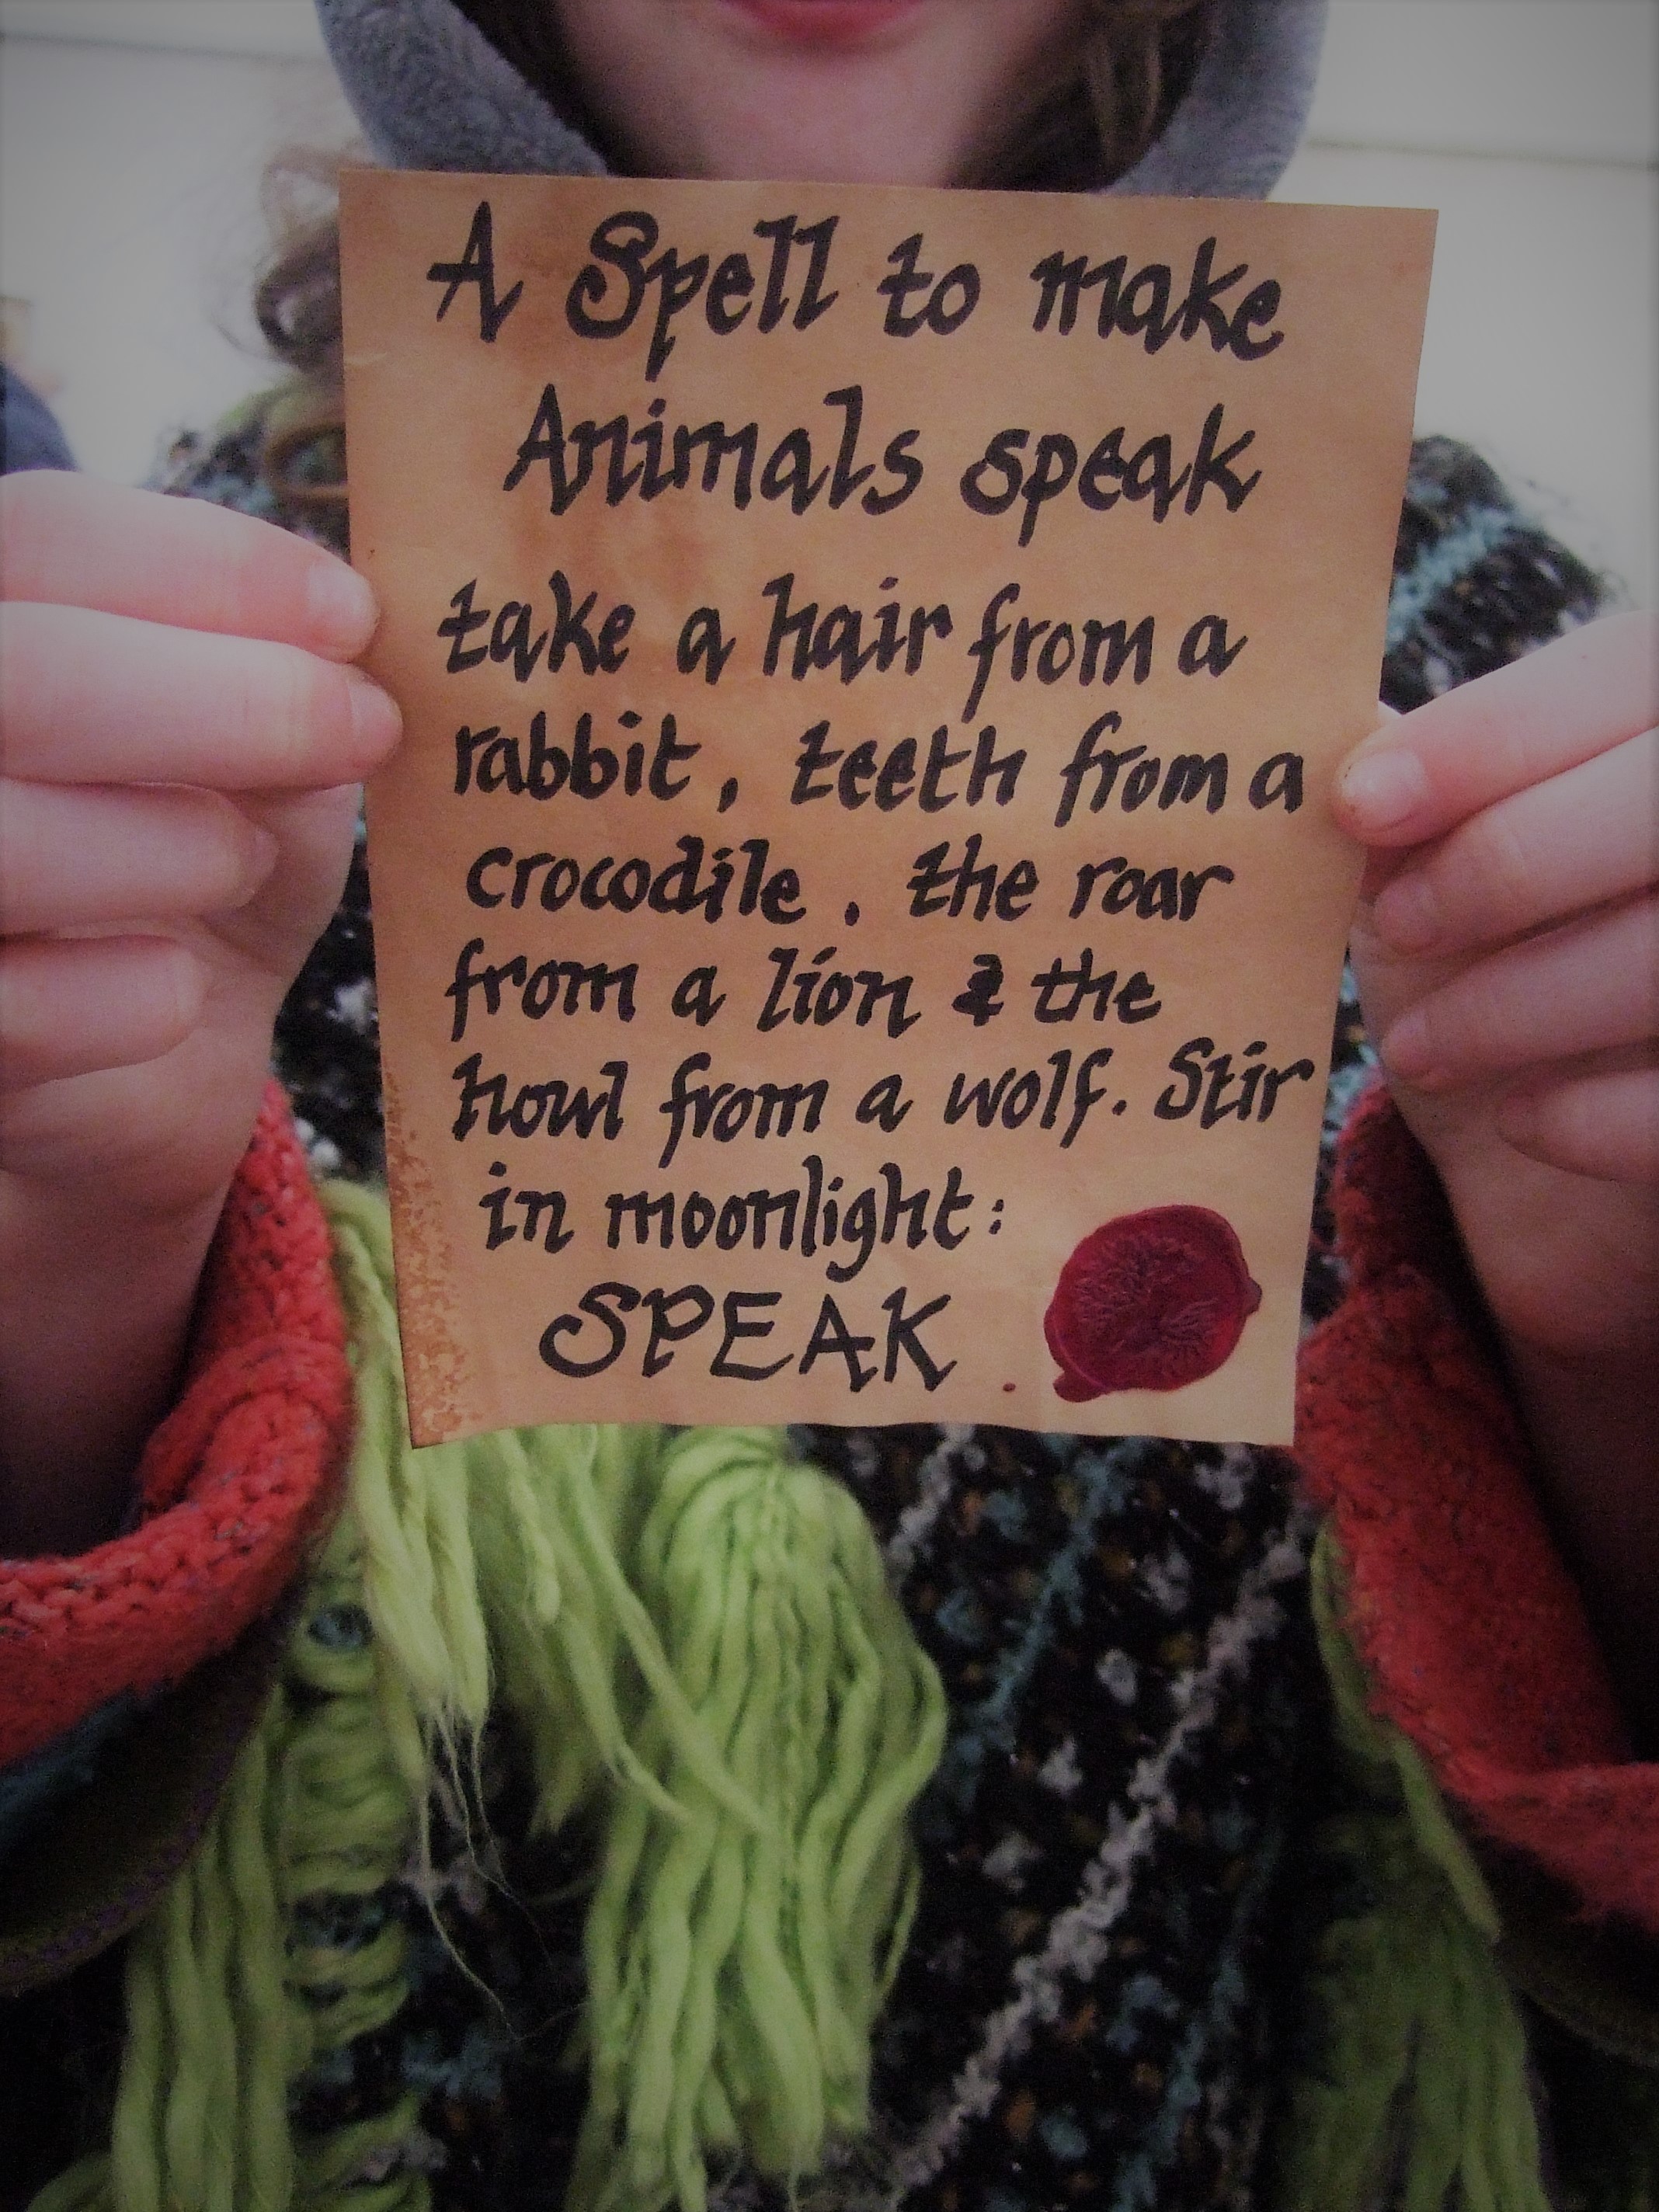 A Spell to make
Animals speak
take a hair from a
rabbit, teeth from a
crocodile. the roar
from a lion & the
howl from a wolf. Stir
in moonlight:
SPEAK